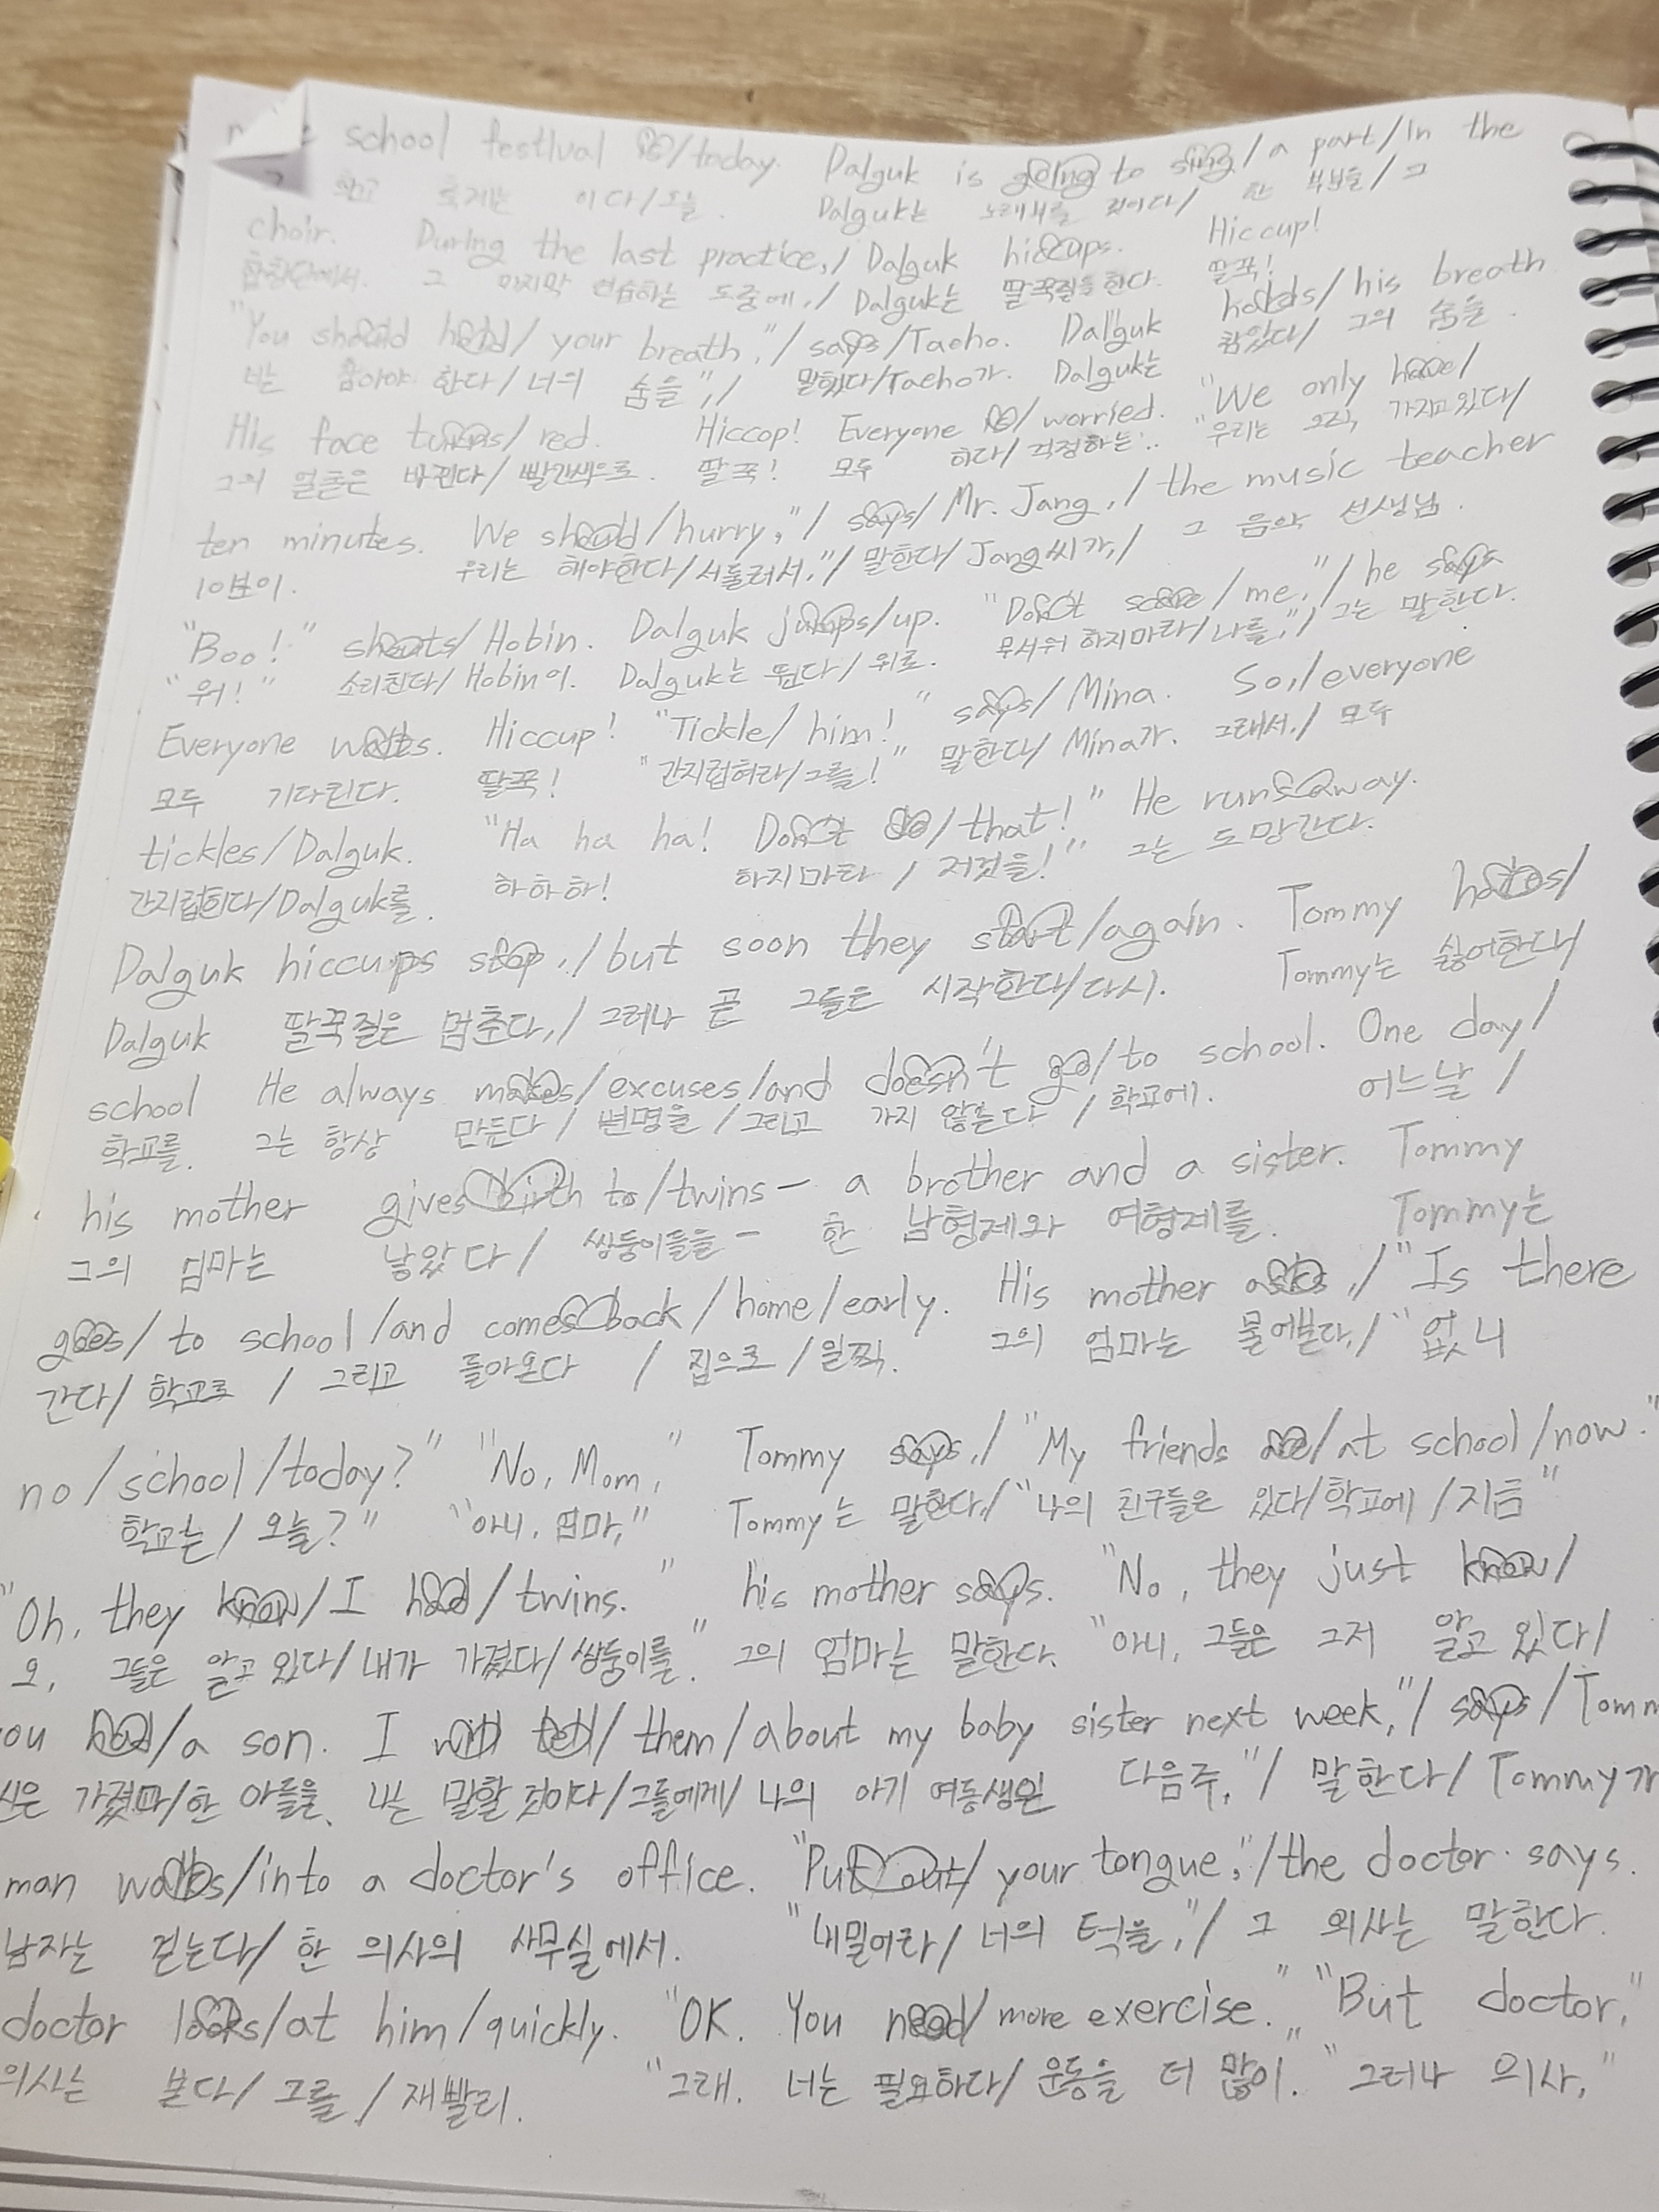 school festival is/today. Dalguk is going to sing/a part/in the
학교 축제는 이다/오늘. Dalguk는 노래부를 것이다/ 한 부분을/그
choir. During the last practice,/ Dalguk hiccups. Hiccup!
합창단에서. 그 마지막 연습하는 도중에,/ Dalguk는 딸꾹질을 한다. 딸꾹!
"You should hold/ your breath,"/ says/Taeho. Dalguk holds/his breath
너는 참아야 한다/너의 숨을",/ 말했다/Taeho가. Dalguk는 참았다/ 그의 숨을.
His face turns/red. Hiccop! Everyone is/worried. "We only have/
그의 얼굴은 바뀐다/빨간색으로. 딸꾹! 모두 하다/걱정하는.. "우리는 오직, 가지고있다/
ten minutes. We should/hurry,"/ says/Mr. Jang,/ the music teacher
10분이. 우리는 해야한다/서둘러서,"/ 말한다/Jang씨가,/ 그 음악 선생님.
"Boo!" shouts/Hobin. Dalguk jumps/up. "Don't scare/me,"/he says
"워!" 소리친다/Hobin이. Dalguk는 뛴다/위로. 무서워 하지마라/나를,"/그는 말한다.
Everyone waits. Hiccup! "Tickle/him!" says/Mina. So,/everyone
모두 기다린다. 딸꾹! "간지럽혀라/그를!" 말한다/Mina가. 그래서,/ 모두
tickles/Dalguk. "Ha ha ha! Don't do/that!" He runs away.
간지럽힌다/Dalguk를. 하하하! 하지마라 / 저것을!" 그는 도망간다.
Dalguk hiccups stop,/but soon they start/again. Tommy hates/
Dalguk 딸꾹질은 멈춘다,/그러나 곧 그들은 시작한다/다시. Tommy는 싫어한다/
school He always makes/excuses/and doesn't go/to school. One day/
학교를. 그는 항상 만든다/변명을/그리고 가지 않는다 /학교에. 어느날 /
his mother gives birth to/twins— a brother and a sister. Tommy
그의 엄마는 낳았다/ 쌍둥이들을— 한 남형제와 여형제를. Tommy는
goes/to school/and comes back/home/early. His mother asks,/"Is there
간다/학교로 / 그리고 돌아온다 / 집으로/일찍. 그의 엄마는 물어본다,/"없니
no/school/today?" "No, Mom," Tommy says,/"My friends are/at school/now."
학교는/ 오늘?" "아니, 엄마," Tommy는 말한다,/"나의 친구들은 있다/학교에/지금"
"Oh, they know/I had/twins." his mother says. "No, they just know/
오, 그들은 알고 있다/내가 가졌다/쌍둥이를." 그의 엄마는 말한다. "아니, 그들은 그저 알고 있다/
ou had/a son. I will tell/them/about my baby sister next week,"/says/Tomm
신은 가졌다/한 아들을. 나는 말할 것이다/그들에게/나의 아기 여동생은 다음주,"/ 말한다/Tommy가
man walks/into a doctor's office. "Put out/your tongue,"/the doctor says.
남자는 걷는다/한 의사의 사무실에서. "내밀어라/너의 턱을,"/ 그 의사는 말한다.
doctor looks/at him/quickly. "OK. You need/more exercise." "But doctor,"
의사는 본다/ 그를 /재빨리. "그래. 너는 필요하다/운동을 더 많이." "그러나 의사,"